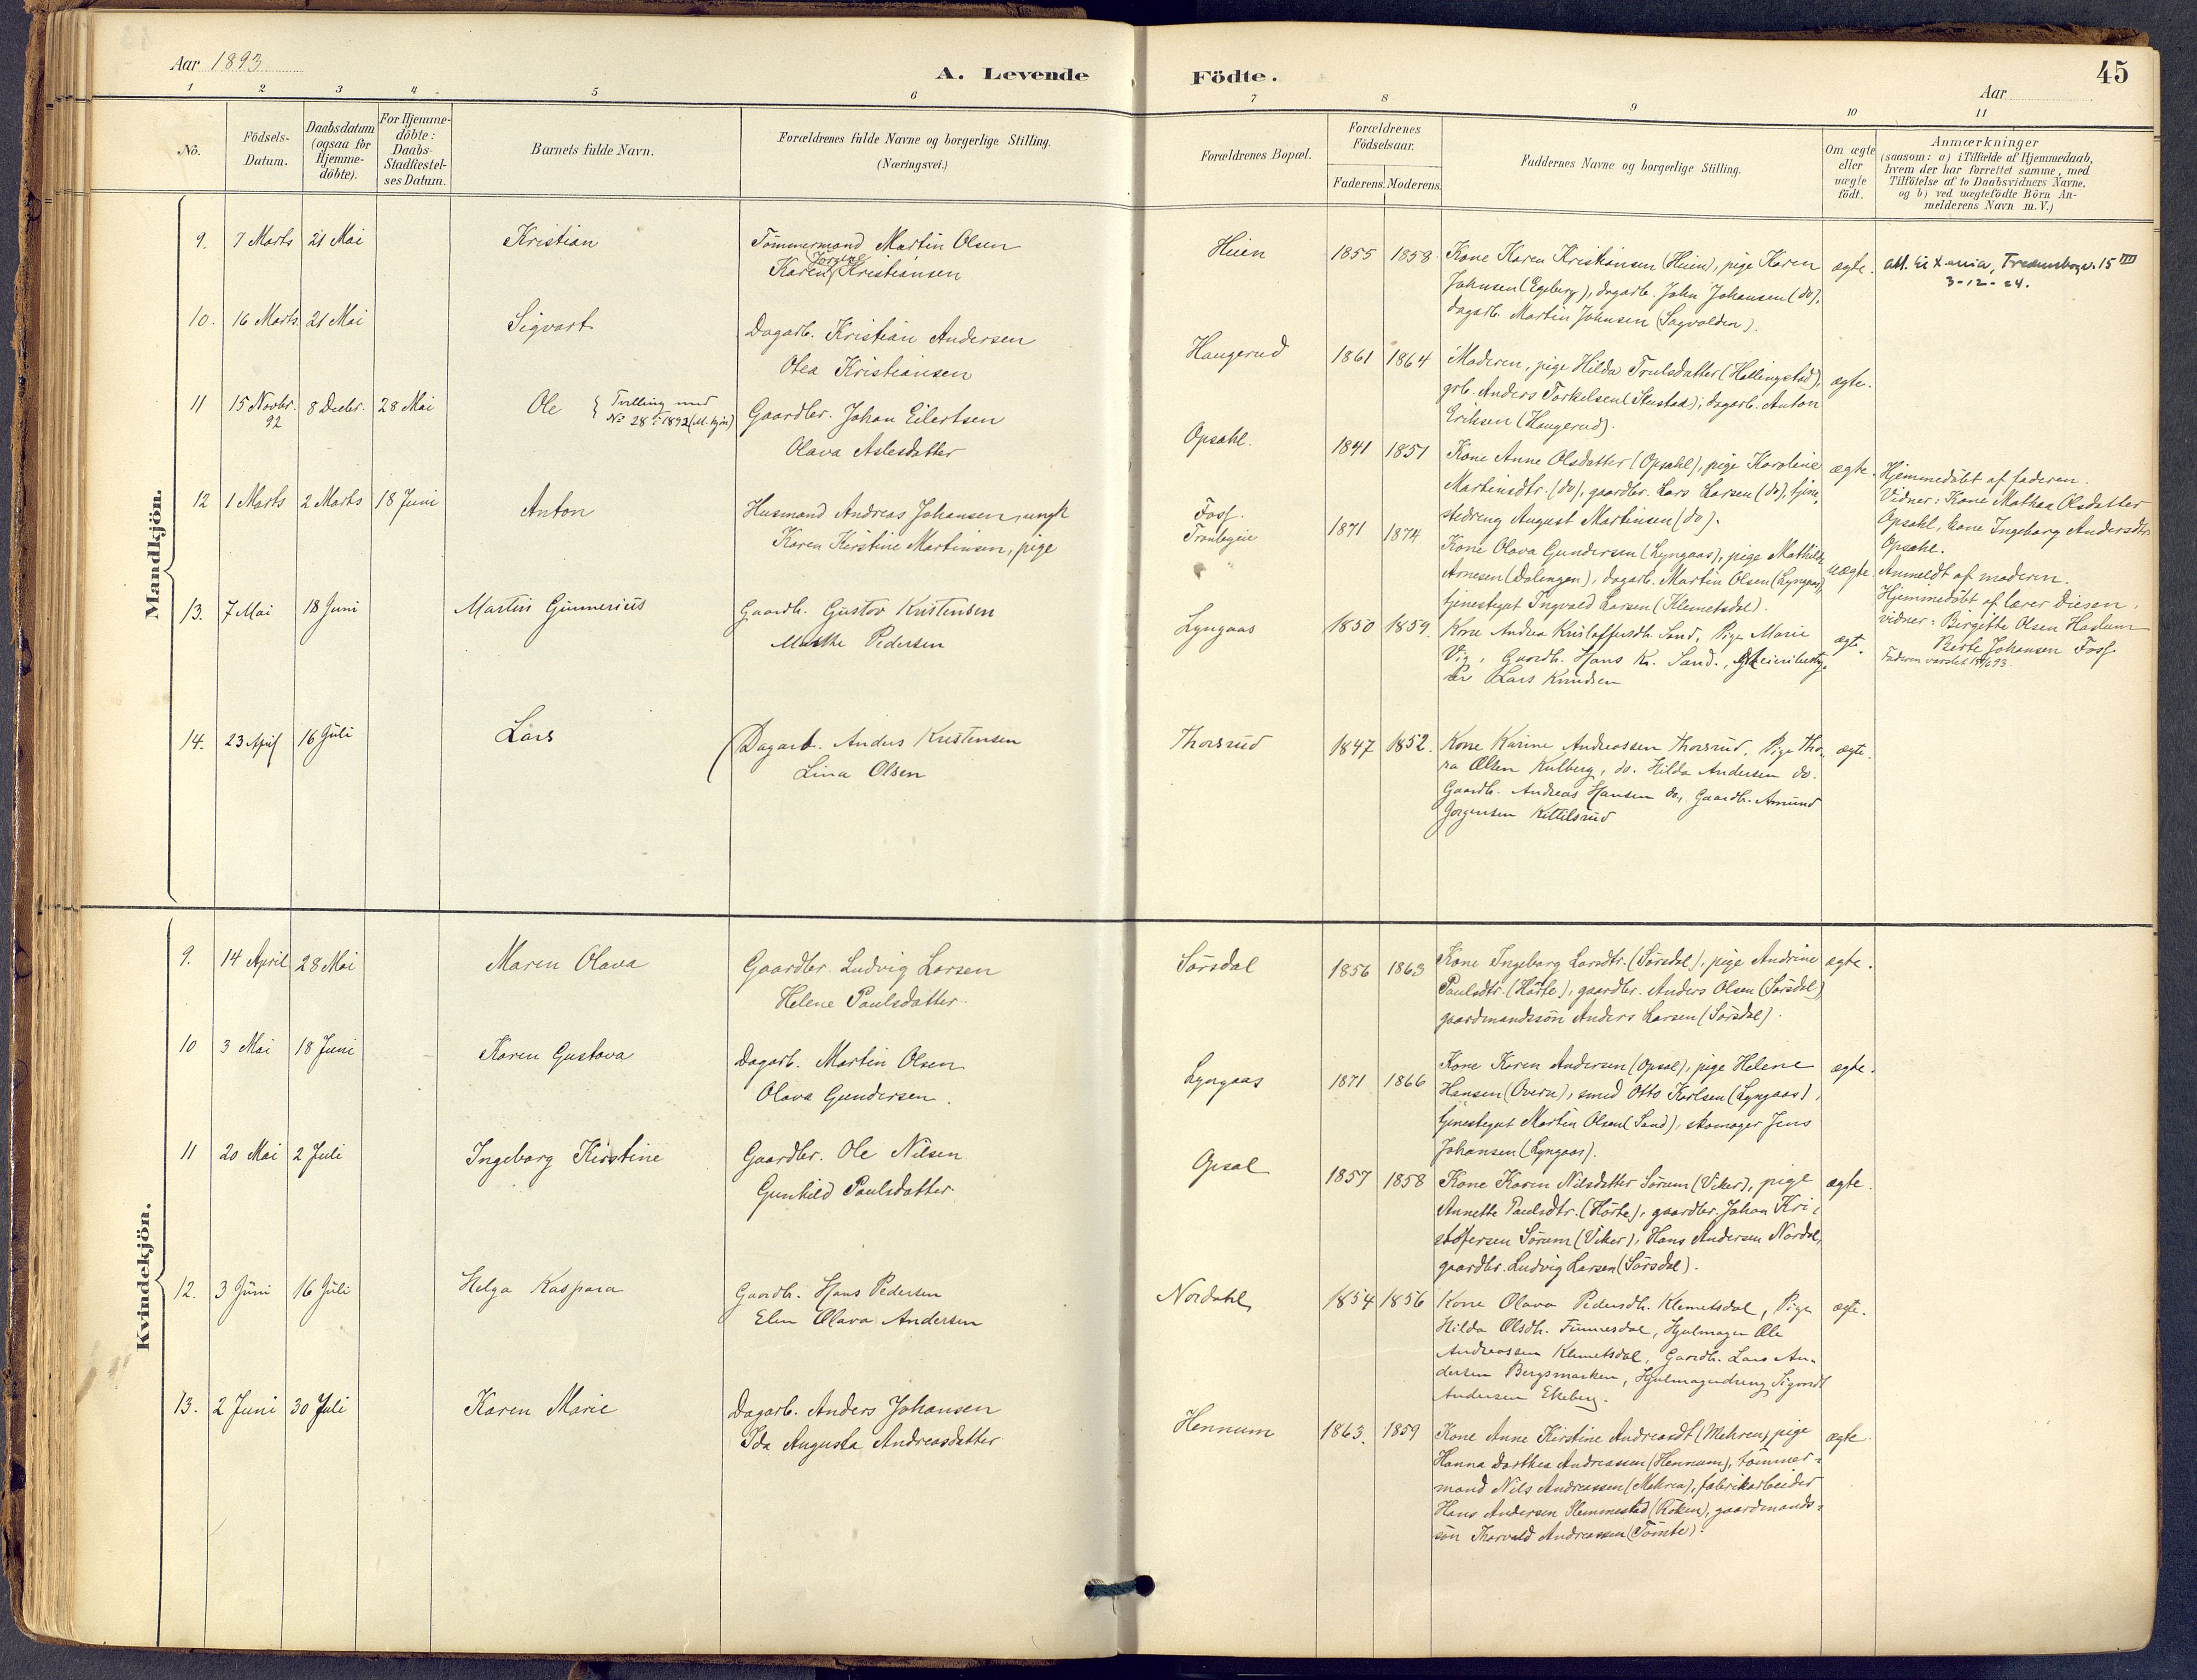 Aar 1893
A. Levende Födte.
45
Aar
1 2 3 4 5 6 7 8 9 10 11
No.
Födsels-Datum.
Daabsdatum (ogsaa for Hjemme-döbte).
For Hjemme-döbte: Daabs-Stadfæstel-ses Datum.
Barnets fulde Navn.
Forældrenes fulde Navne og borgerlige Stilling.
(Næringsvei.)
Forældrenes Bopæl.
Forældrenes Födselsaar.
Faderens. Moderens.
Faddernes Navne og borgerlige Stilling.
Om ægte eller uægte födt.
Anmærkninger
(saasom: a) i Tilfælde af Hjemmedaab, hvem der har forrettet samme, med Tilföielse af to Daabsvidners Navne, og b) ved uægtefödte Börn An-melderens Navn m. V.)
Mandkjön.
9. 7 Marts 21 Mai Kristian
Tömmermand Martin Olsen
Karen Jorgine Kristiansen
Huen 1855 1858
Kone Karen Kristiansen (Huen), pige Karen
Johnsen (Egeberg), dagarb. John Johansen (do),
dagarb. Martin Johnsen (Sagvolden).
ægte.
3-12-24.
10. 16 Marts 21 Mai Sigvart
Dagarb. Kristian Andersen
Olea Kristiansen
Haugerud 1861 1864
Moderen, pige Hilda Trulsdatter (Hellingstad),
grb. Anders Torkelsen (Skustad), dagarb. Anton
Eriksen (Haugerud).
ægte.
11 15 Novbr. 92 8 Decbr. 28 Mai Ole
{ Tvilling med
No 28 - 1892 (M. kjön)
Gaardbr. Johan Eilertsen
Olava Aslesdatter
Opsahl. 1841 1851
Kone Anne Olsdatter (Opsahl), pige Karoline
Martinsdtr. (do), gaardbr. Lars Larsen (do), tjene,
stedreng August Martinsen (do).
ægte.
Hjemmedöbt af faderen.
Vidner: Kone Mathea Olsdatter
Opsahl, kone Ingeborg Andersdtr.
Opsahl.
12 1 Marts 2 Marts 18 Juni Anton
Husmand Andreas Johansen, ungk
Karen Kirstine Martinsen, pige
Foss.
1871 1874
Kone Olava Gundersen (Lyngaas), pige Mathilde
Arnesen (Dalengen), dagarb. Martin Olsen (Lyngaas),
tjenestegut Ingvald Larsen (Klemetsdal).
uægte
Anmeldt af moderen.
Hjemmedöbt af lærer Diesen.
vidner: Birgitte Olsen Haslum
Berte Johansen Foss.
13. 7 Mai 18 Juni Martin Gunnerius
Gaardb. Gustav Kristensen
Marthe Pedersen
Lyngaas 1850 1859.
Kone Andrea Kristoffersdtr. Sand, Pige Marie
Vig, Gaardb. Hans Kr. Sand.,
Lars Knudsen
ægt.
14. 23 April 16 Juli Lars
Dagarb. Anders Kristensen
Lina Olsen
Thorsrud 1847 1852.
Kone Karine Andreassen Thorsrud, Pige Tho-
ra Olsen Kulberg, do. Hilda Andersen do.
Gaardb. Andreas Hansen do., Gaardb. Amund
Jorgensen Kittilsrud
ægte.
Kvindekjön.
9. 14 April 28 Mai Maren Olava
Gaardbr. Ludvig Larsen
Helene Paulsdatter.
Sörsdal 1856 1863
Kone Ingeborg Larsdtr. (Sörsdal), pige Andrine
Paulsdtr. (Hörte), gaardbr. Anders Olsen (Sörsdal)
gaardmandssön Anders Larsen (Sörsdal).
ægte.
10 3 Mai 18 Juni Karen Gustava
Dagarb. Martin Olsen
Olava Gundersen.
Lyngaas 1871 1866
Kone Karen Andersen (Opsal), pige Helene
Hansen (Overn), smed Otto Karlsen (Lyngaas),
tjenestegut Martin Olsen (Sand), skomager Jens
Johansen (Lyngaas).
ægte.
11 20 Mai 2 Juli Ingeborg Kirstine
Gaardbr. Ole Nilsen
Gunhild Paulsdatter
Opsal 1857 1858
Kone Karen Nilsdatter Sörum (Viker), pige
Annette Paulsdtr. (Hörte), gaardbr. Johan Kri-
stofersen Sörum (Viker), Hans Andersen Nordal,
gaardbr. Ludvig Larsen (Sörsdal).
ægte.
12. 3 Juni 16 Juli Helga Kaspara
Gaardb. Hans Pedersen
Elen Olava Andersen
Nordahl 1854 1856
Kone Olava Pedersdtr. Klemetsdal, Pige
Hilda Olsdtr. Finnesdal, Hjulmager Ole
Andreassen Klemetsdal, Gaardb. Lars An-
dersen Bergsmarken, Hjulmagerdreng Sigurd
Andersen Ekeberg.
ægte.
13. 2 Juni 30 Juli Karen Marie
Dagarb. Anders Johansen
Ida Augusta Andreasdatter
Hennum 1863. 1859
Kone Anne Kirstine Andreasdt (Mehren), pige
Hanna Dorthea Andreassen (Hennum), tömmer-
mand Nils Andreassen (Mehren), fabrikarbeider
Hans Andersen Slemmestad (Röken), gaardmands-
sön Thorvald Andreassen (Tömte).
ægte